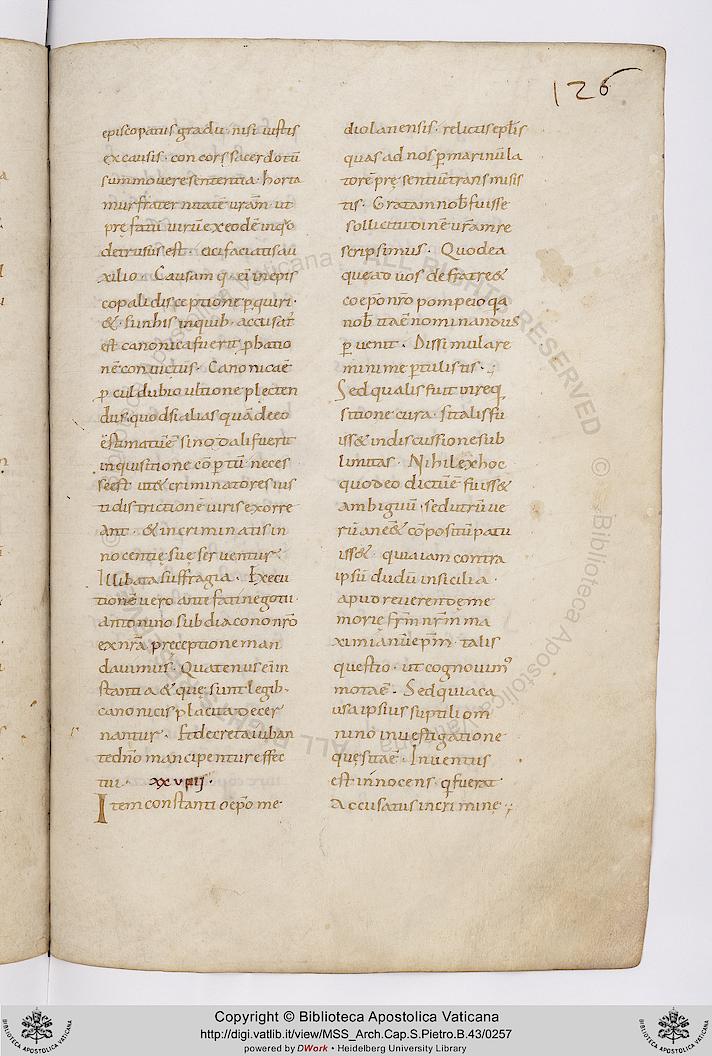 126
episcopatus gradu· nisi iustis
excausis· concors sacerdotū
summovere sententia· horta
mur fraternitatē vr̄am· ut
pręfatū virū exeodē inq̇o
detrusus est· eici faciatis au
xilio· Causam q· eī inepis
copali disceptione ꝑquiri·
&· si inhis inquib· accusat̄
est canonica fuerit ꝓbatio
nē convictus· Canonicaē
ꝓcul dubio ultione plecten
dus· quodsi alias quā deeo
ęstimatūē sinodali fuerit
inquisitione cōꝑtū· neces
seest ut& criminatores ius
ti districtionē viris exorre
ant· & incriminatis in
nocentię suę serventur
Illibata suffragia· Execu
tionē vero antefati negotii·
antonino subdiacono nr̄o
exnr̄a preceptione man
davimus· Quatenus eī in
stantia & que sunt legib·
canonicis placita decer
nantur· Et decreta iuban
te dn̄o mancipentur effec
tui· xxviij·
Item constantio epō me
diolanensis· relictus epl̄is
quas ad nos ꝑ marinū la
torē pręsentiū transmisis
tis· Gratam nob̄ fuisse
sollicitudinē vr̄am re
scripsimus· Quod ea
que ad vos de fratre &
coepō nr̄o pompeio q̄a
nob̄ itaē nominandus
ꝑvenit· Dissimulare
minime ꝑtulistis·;
Sed qualis fuit in req
sitione cura· si talis fu
iss& indiscussione sub
limitas· Nihil exhoc
quod eo dictūē fuiss&
ambiguū· sed utrū ve
rū an eē& cōpositū patu
iss&· quia iam contra
ipsū dudū insicilia·
apud reverendęme
morie fr̄m nr̄m ma
ximianū ep̄m· talis
questio· ut cognovim᾽
motaē· Sed quia ca
usa ipsius suptili om
nino investigatione
quęsitaē· Inventus
est innocens· qͥ fuerat
accusatus incrimine·;
ALL RIGHTS RESERVED © Biblioteca Apostolica Vaticana
Copyright © Biblioteca Apostolica Vaticana
http://digi.vatlib.it/view/MSS_Arch.Cap.S.Pietro.B.43/0257
powered by DWork • Heidelberg University Library
BIBLIOTECA APOSTOLICA VATICANA
BIBLIOTECA APOSTOLICA VATICANA